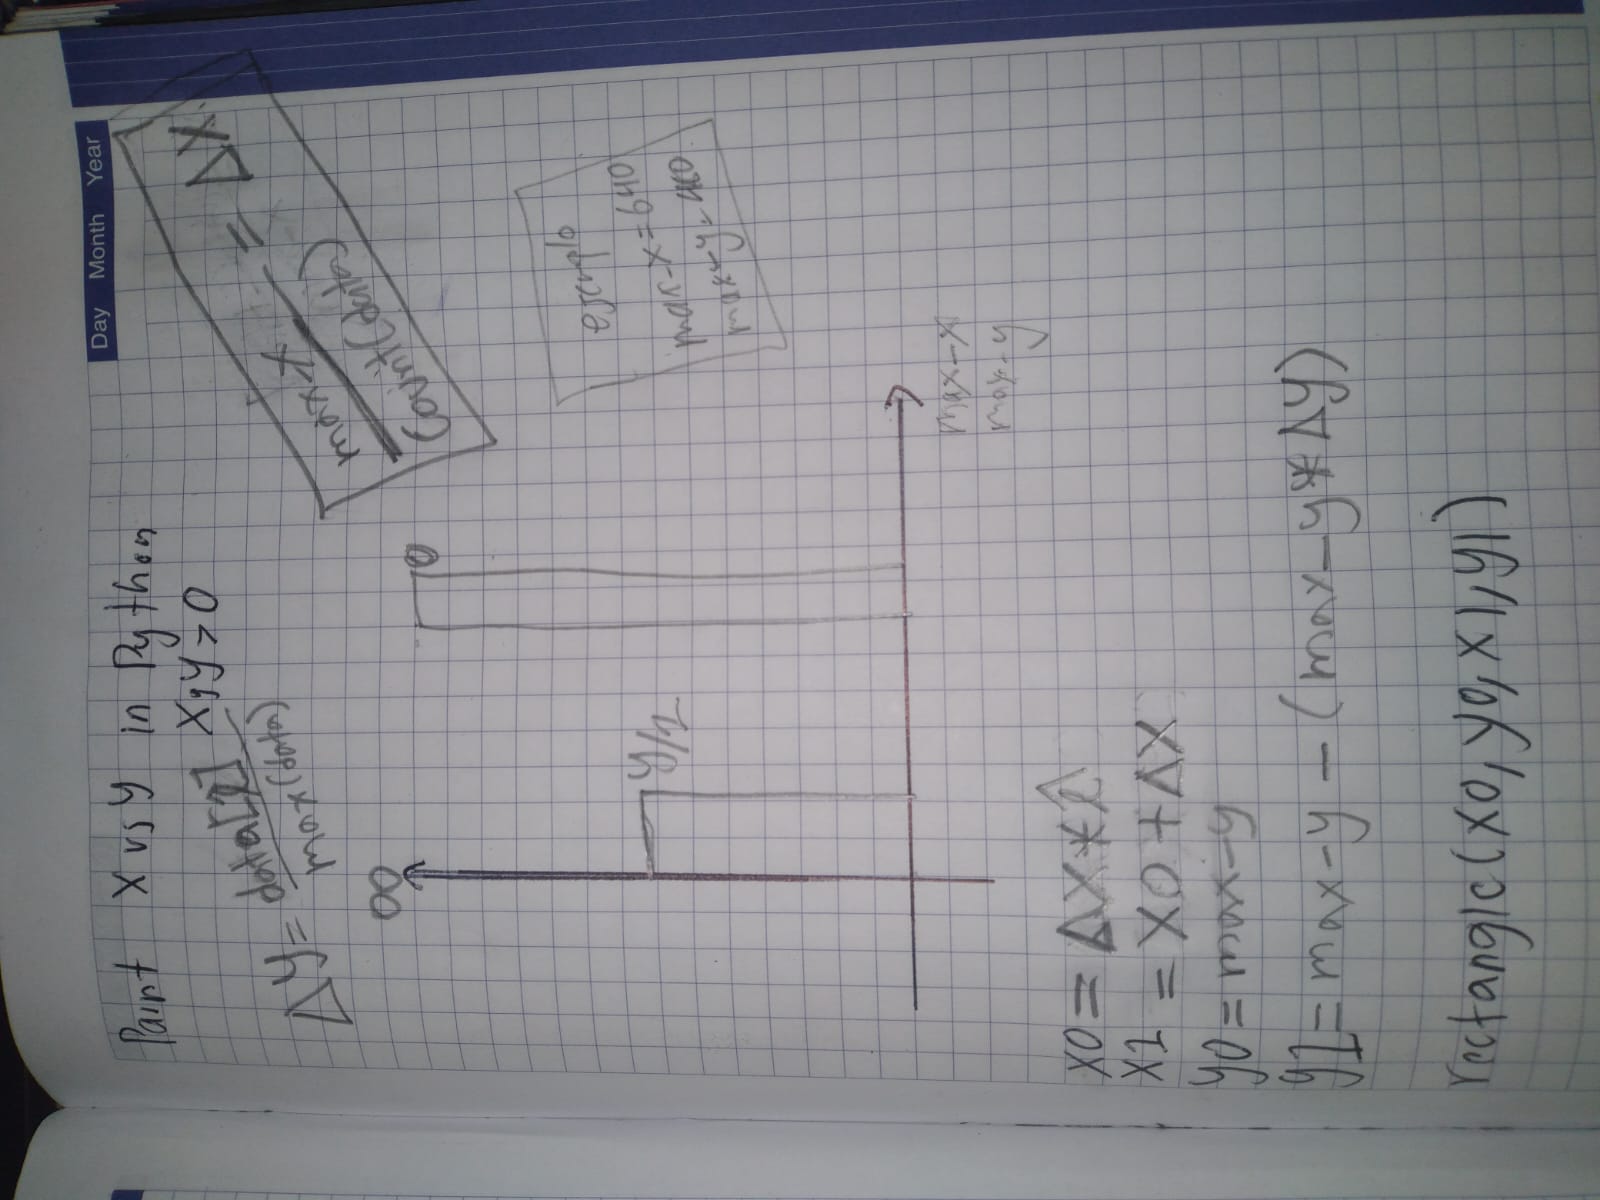 Day Month Year
Paint X vs y in Python
X, y > 0
Δy = data[i] / max(data)
max-X / Count(data) = ΔX
∞
0
ejemplo
max-X = 640
max-y =
y/2
max-x
max-y
X0 = ΔX * i
X1 = X0 + ΔX
y0 = max-y
y1 = max-y - (max-y * Δy)
rectangle(X0, y0, X1, y1)